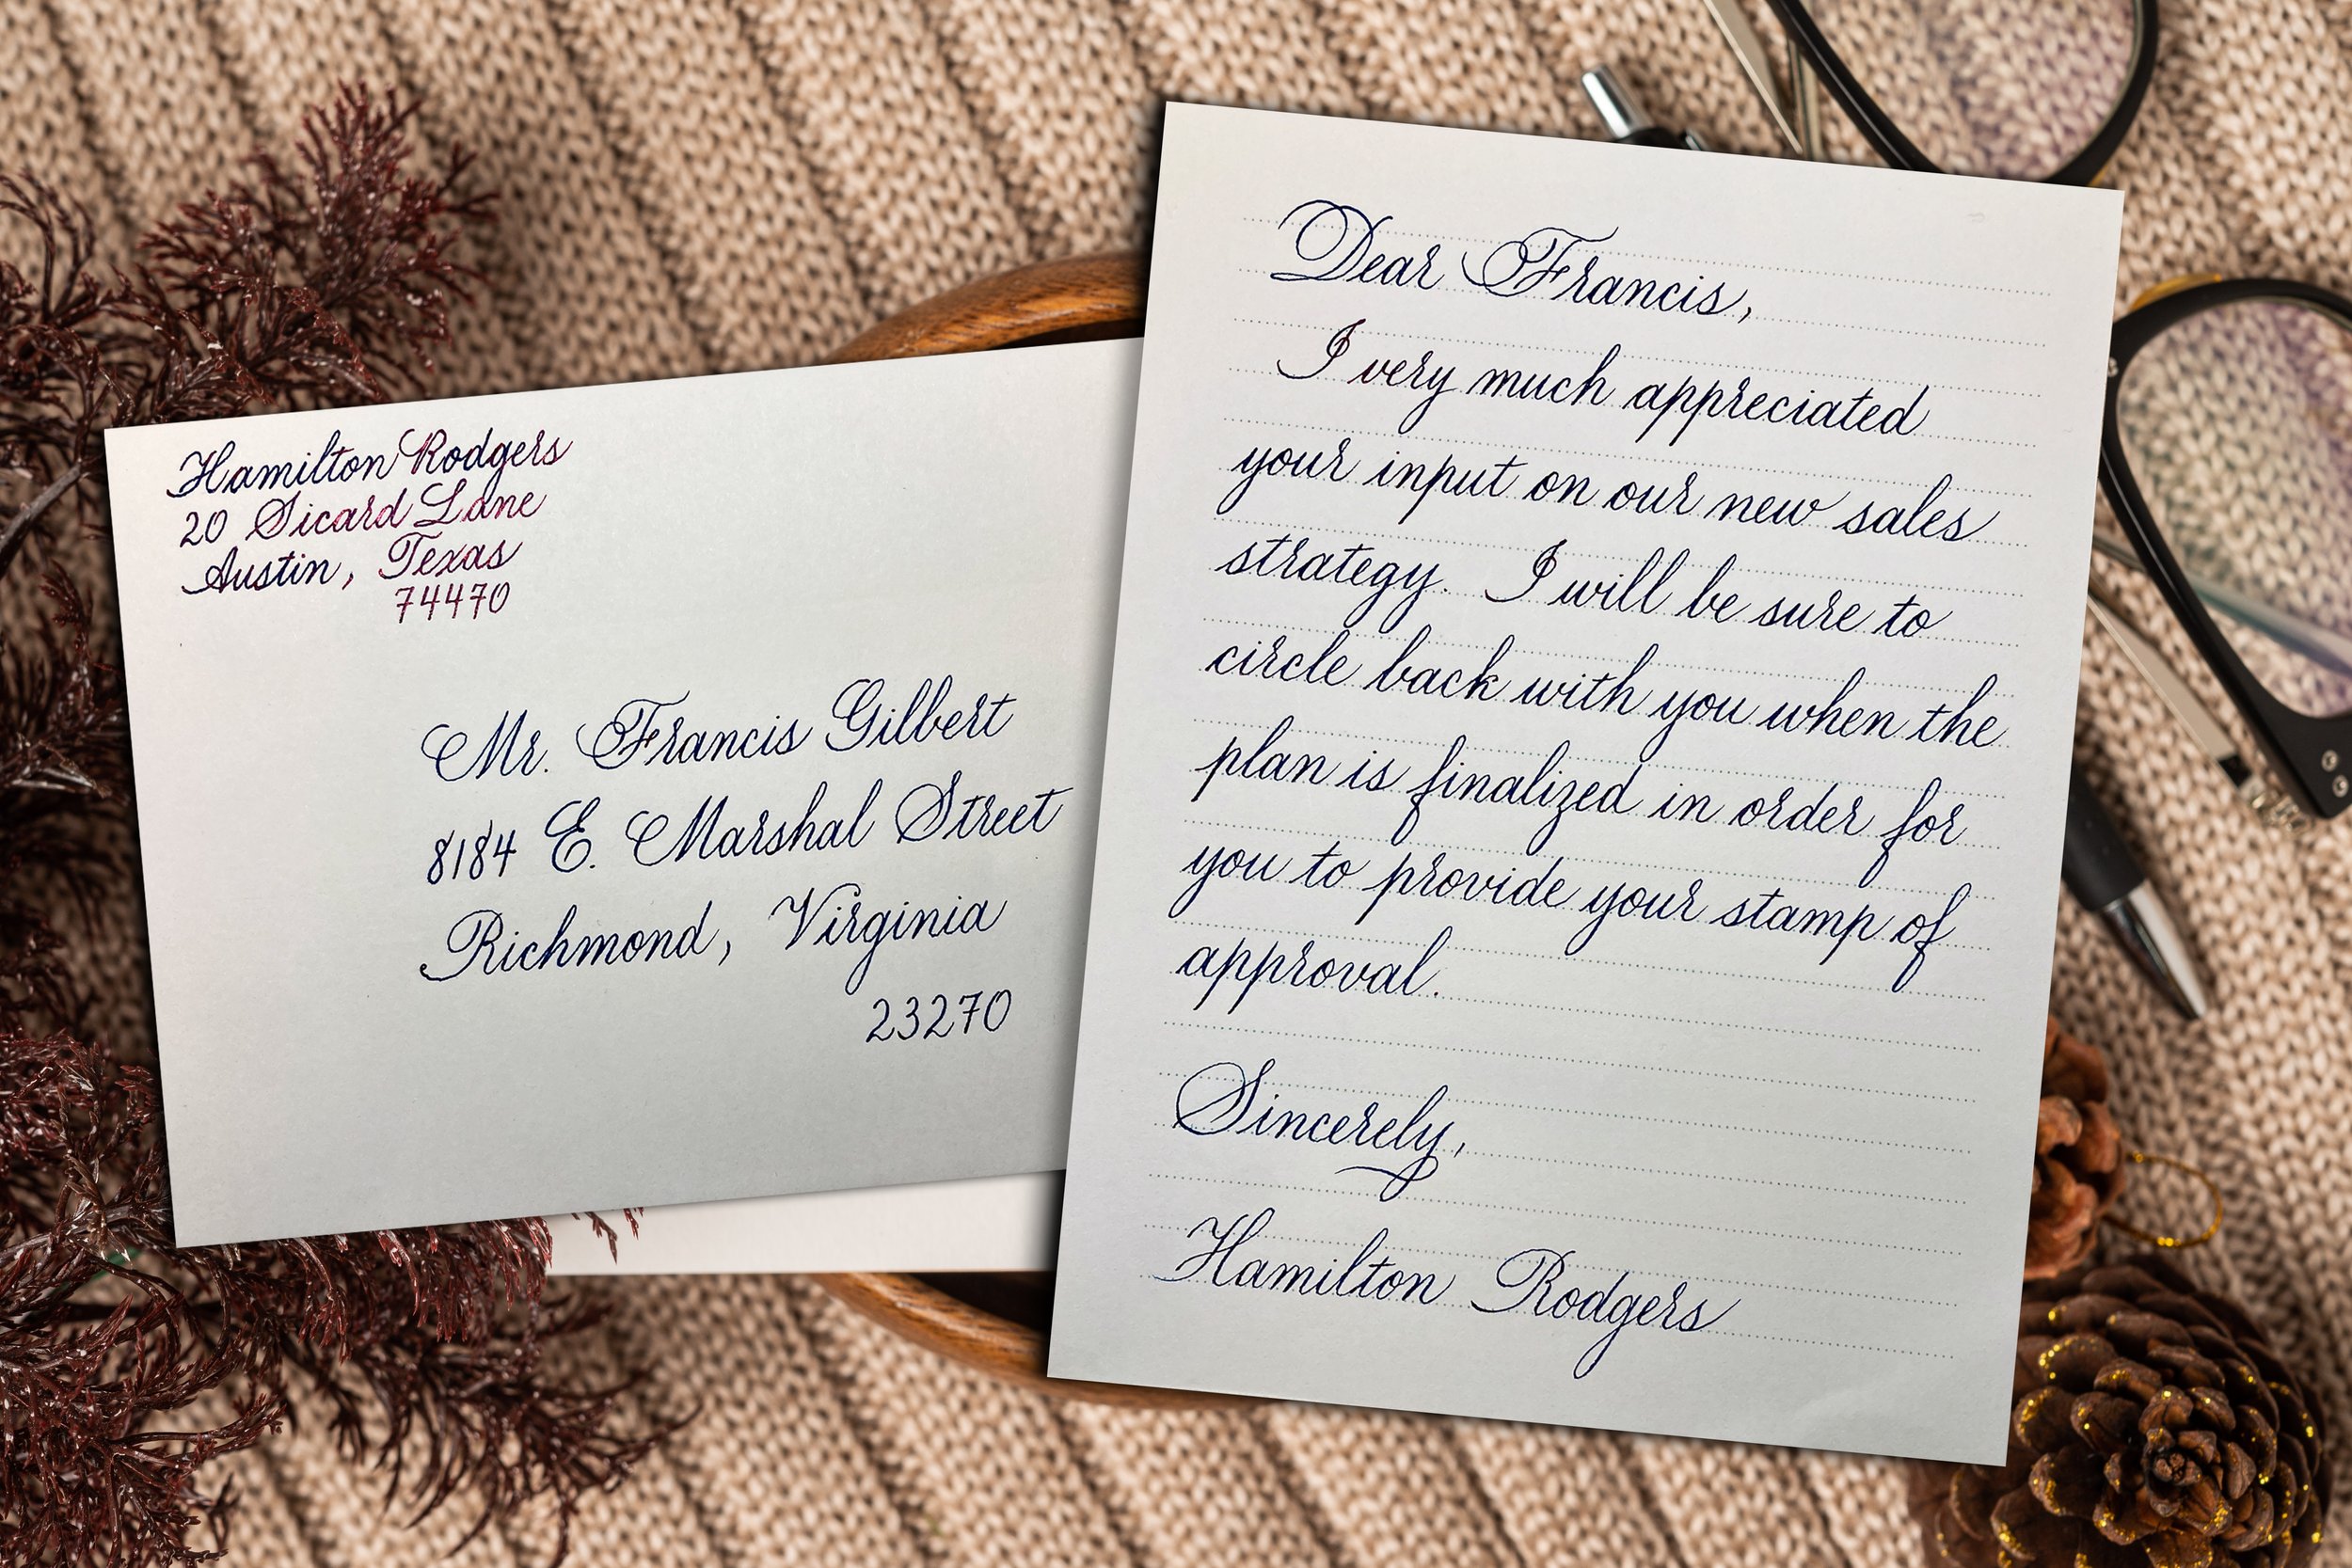 Hamilton Rodgers
20 Sicard Lane
Austin, Texas
74470
Mr. Francis Gilbert
8184 E. Marshal Street
Richmond, Virginia
23270
Dear Francis,
I very much appreciated
your input on our new sales
strategy. I will be sure to
circle back with you when the
plan is finalized in order for
you to provide your stamp of
approval.
Sincerely,
Hamilton Rodgers